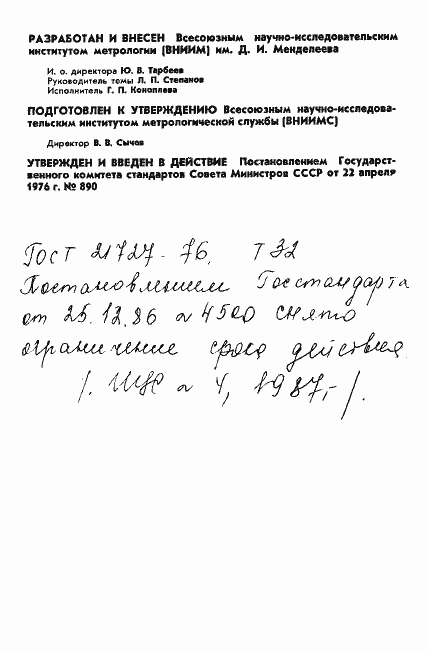 РАЗРАБОТАН И ВНЕСЕН Всесоюзным научно-исследовательским
институтом метрологии (ВНИИМ) им. Д. И. Менделеева
И. о. директора Ю. В. Тарбеев
Руководитель темы Л. П. Степанов
Исполнитель Г. П. Коноплева
ПОДГОТОВЛЕН К УТВЕРЖДЕНИЮ Всесоюзным научно-исследова-
тельским институтом метрологической службы (ВНИИМС)
Директор В. В. Сычев
УТВЕРЖДЕН И ВВЕДЕН В ДЕЙСТВИЕ Постановлением Государст-
венного комитета стандартов Совета Министров СССР от 22 апреля
1976 г. № 890
Гост 21727-76. Т 32
Постановлением Госстандарта
от 25.12.86 № 4500 снято
ограничение срока действия
/. ИУС № 4, 1987,- /.